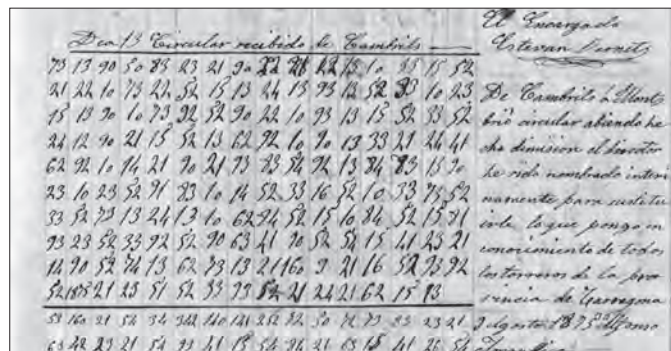 El Encargado
Estevan Vernets
Dia 13 Circular recibido de Cambrils
73 13 90 50 83 23 21 90 22 21 22 13 10 33 15 52
21 22 10 73 22 52 15 13 24 13 93 13 52 93 10 23
15 13 90 10 73 92 52 90 22 10 93 13 15 52 33 52
24 12 90 21 15 52 13 62 92 10 90 13 33 21 24 41
62 92 10 14 21 90 21 73 83 54 92 13 84 83 13 90
23 10 23 52 91 83 10 14 52 33 16 52 10 33 73 52
33 52 73 13 24 13 10 62 84 52 15 10 84 52 15 81
93 23 52 33 92 52 90 63 41 90 52 54 15 41 23 21
14 90 52 74 13 62 73 13 21 160 9 21 16 52 73 92
52 1875 21 23 51 52 33 73 52 21 24 21 62 15 13
De Cambrils á Mont
brió circular abiendo he
cho dimision el director
he sido nombrado interi
namente para sustitu
irle lo que pongo en
conocimiento de todos
los torreros de la pro
vincia de Tarragona
2 Agosto 1875 Alfonso